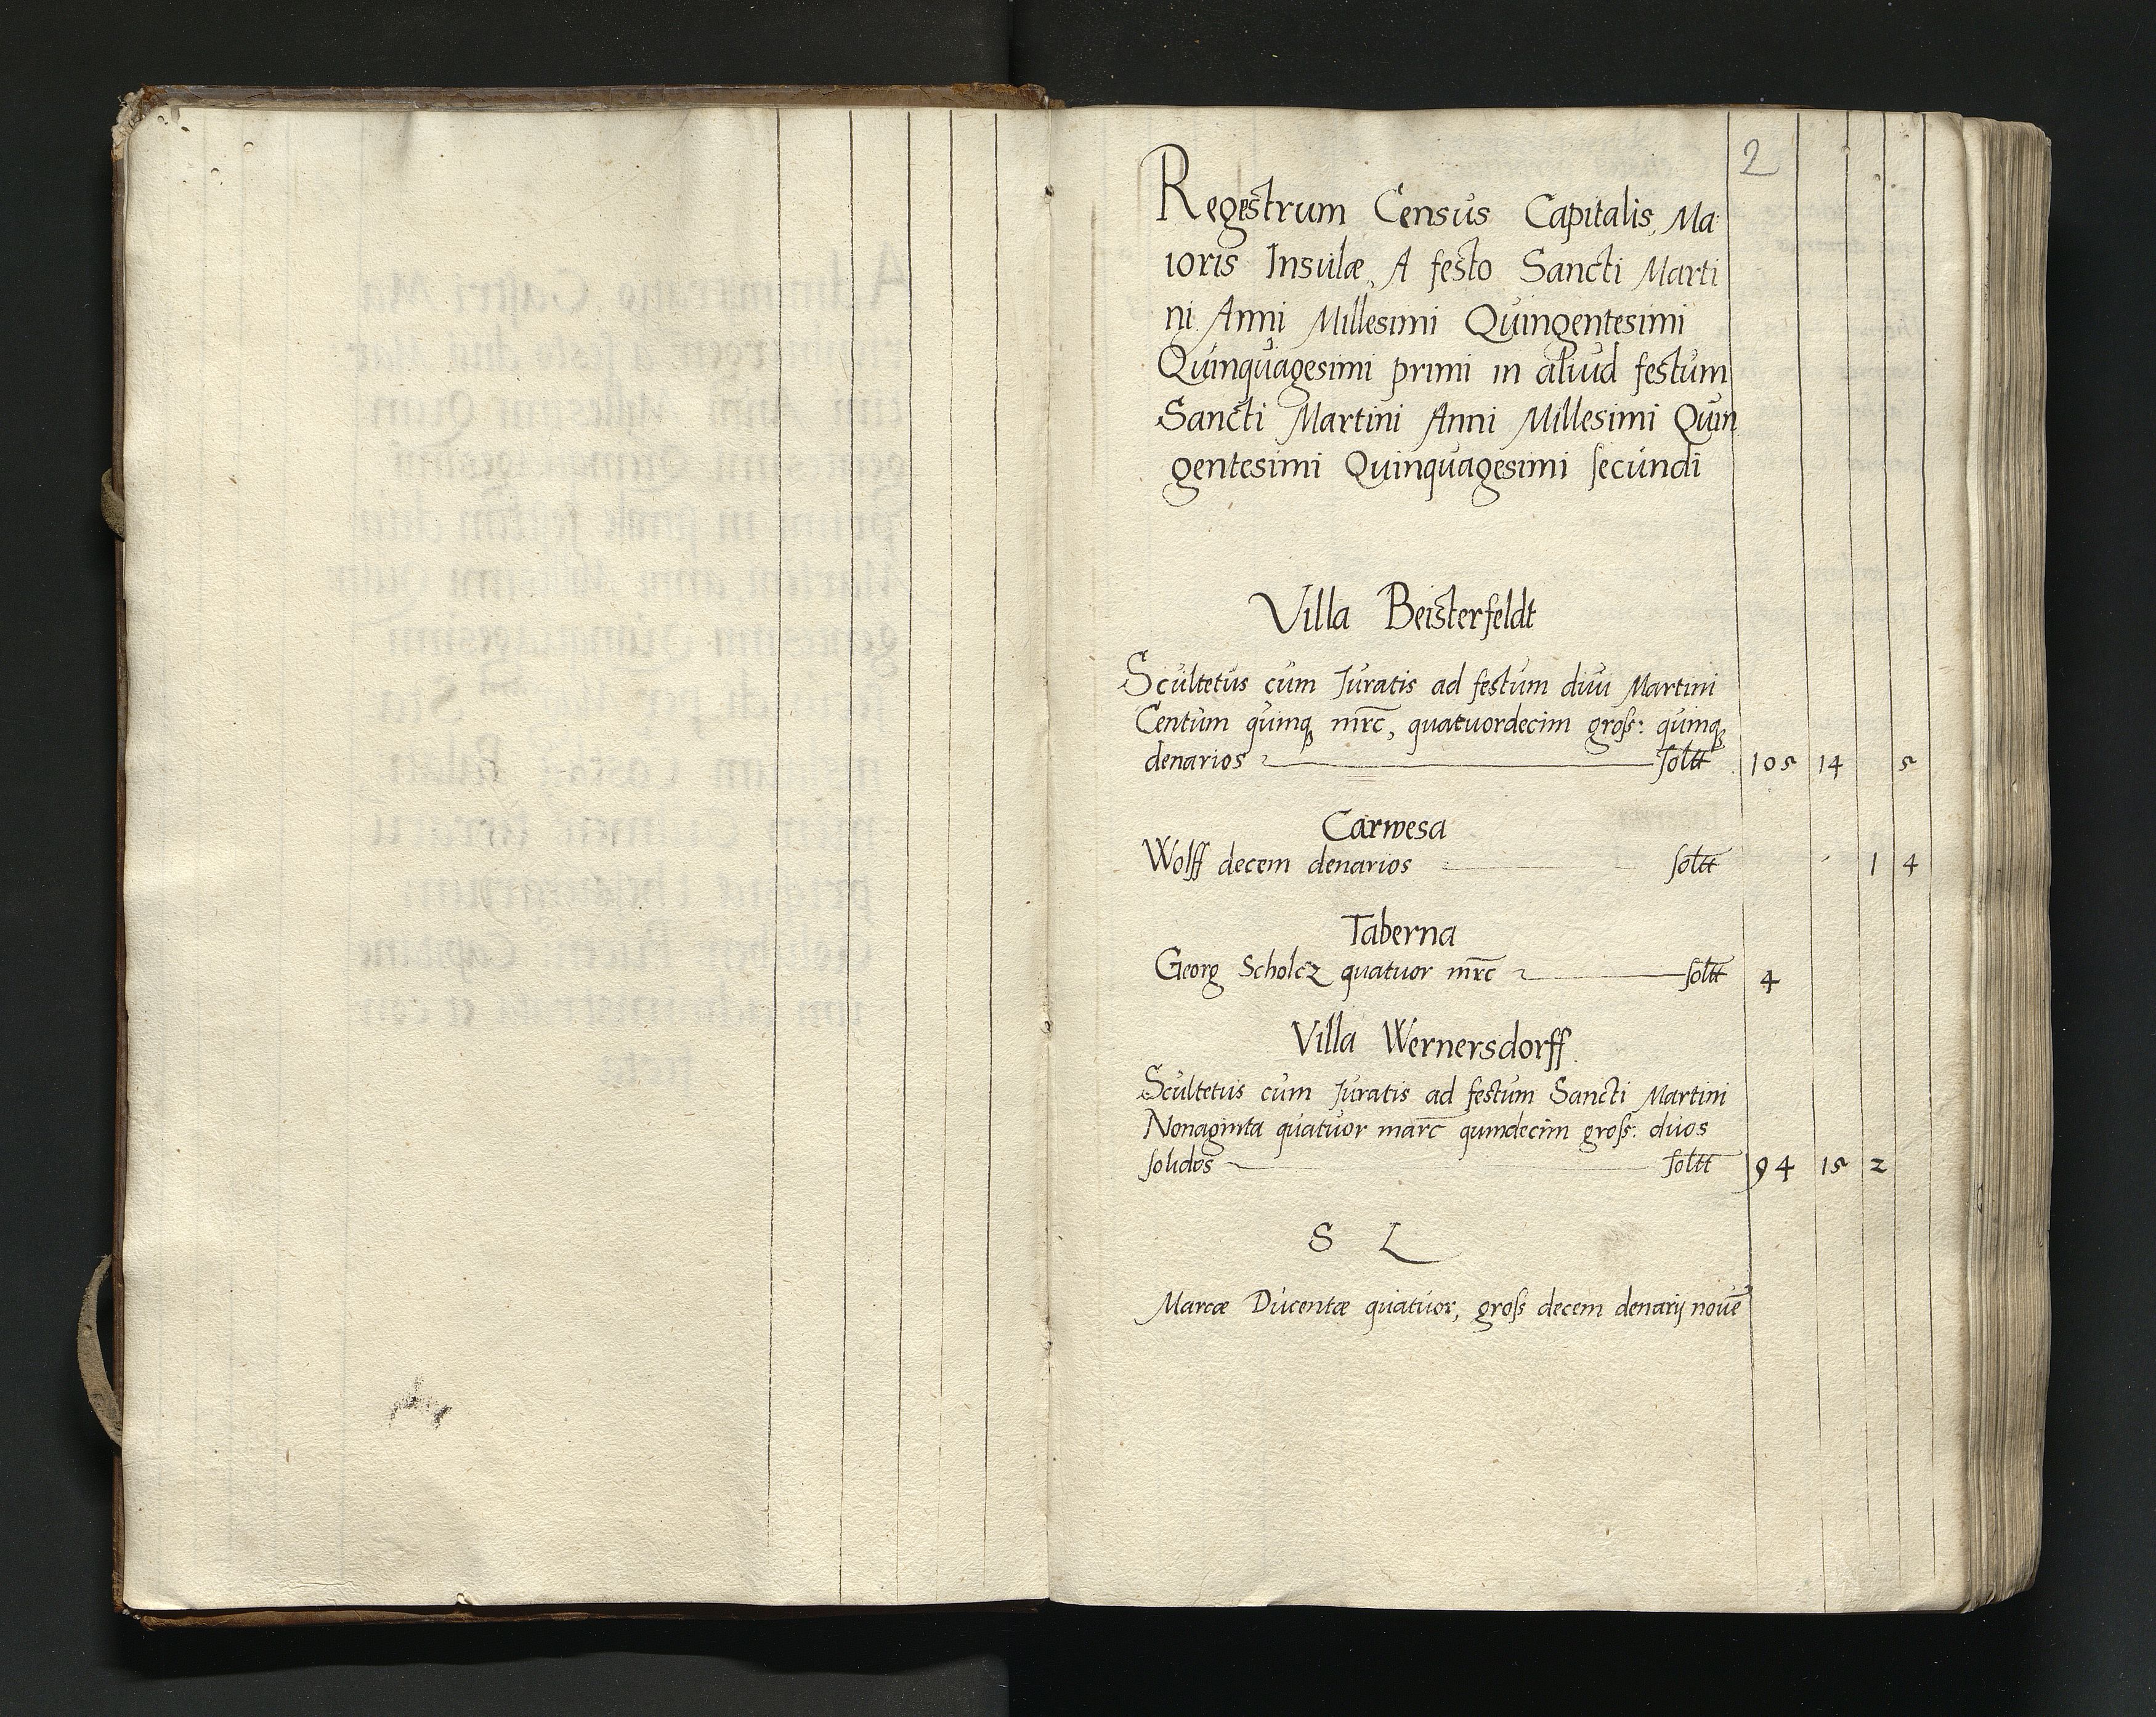 2
Regestrum Census Capitalis, Ma:
ioris Insulæ, A festo Sancti Marti
ni Anni Millesimi Quingentesimi
Quinquagesimi primi in aliud festum
Sancti Martini Anni Millesimi Quin
gentesimi Quinquagesimi secundi
Villa Beisterfeldt
Scultetus cum Iuratis ad festum diui Martini
Centum quinqꝫ mrc̄, quatuordecim gross: quinqꝫ
denarios soltt 105 14 5
Carwesa
Wolff decem denarios soltt 1 4
Taberna
Georg Scholcz quatuor mrc̄ soltt 4
Villa Wernersdorff
Scultetus cum Iuratis ad festum Sancti Martini
Nonaginta quatuor marc̄ quindecim gross: duos
solidos soltt 94 15 2
S L
Marcæ Ducentæ quatuor, gross decem denarij nouē